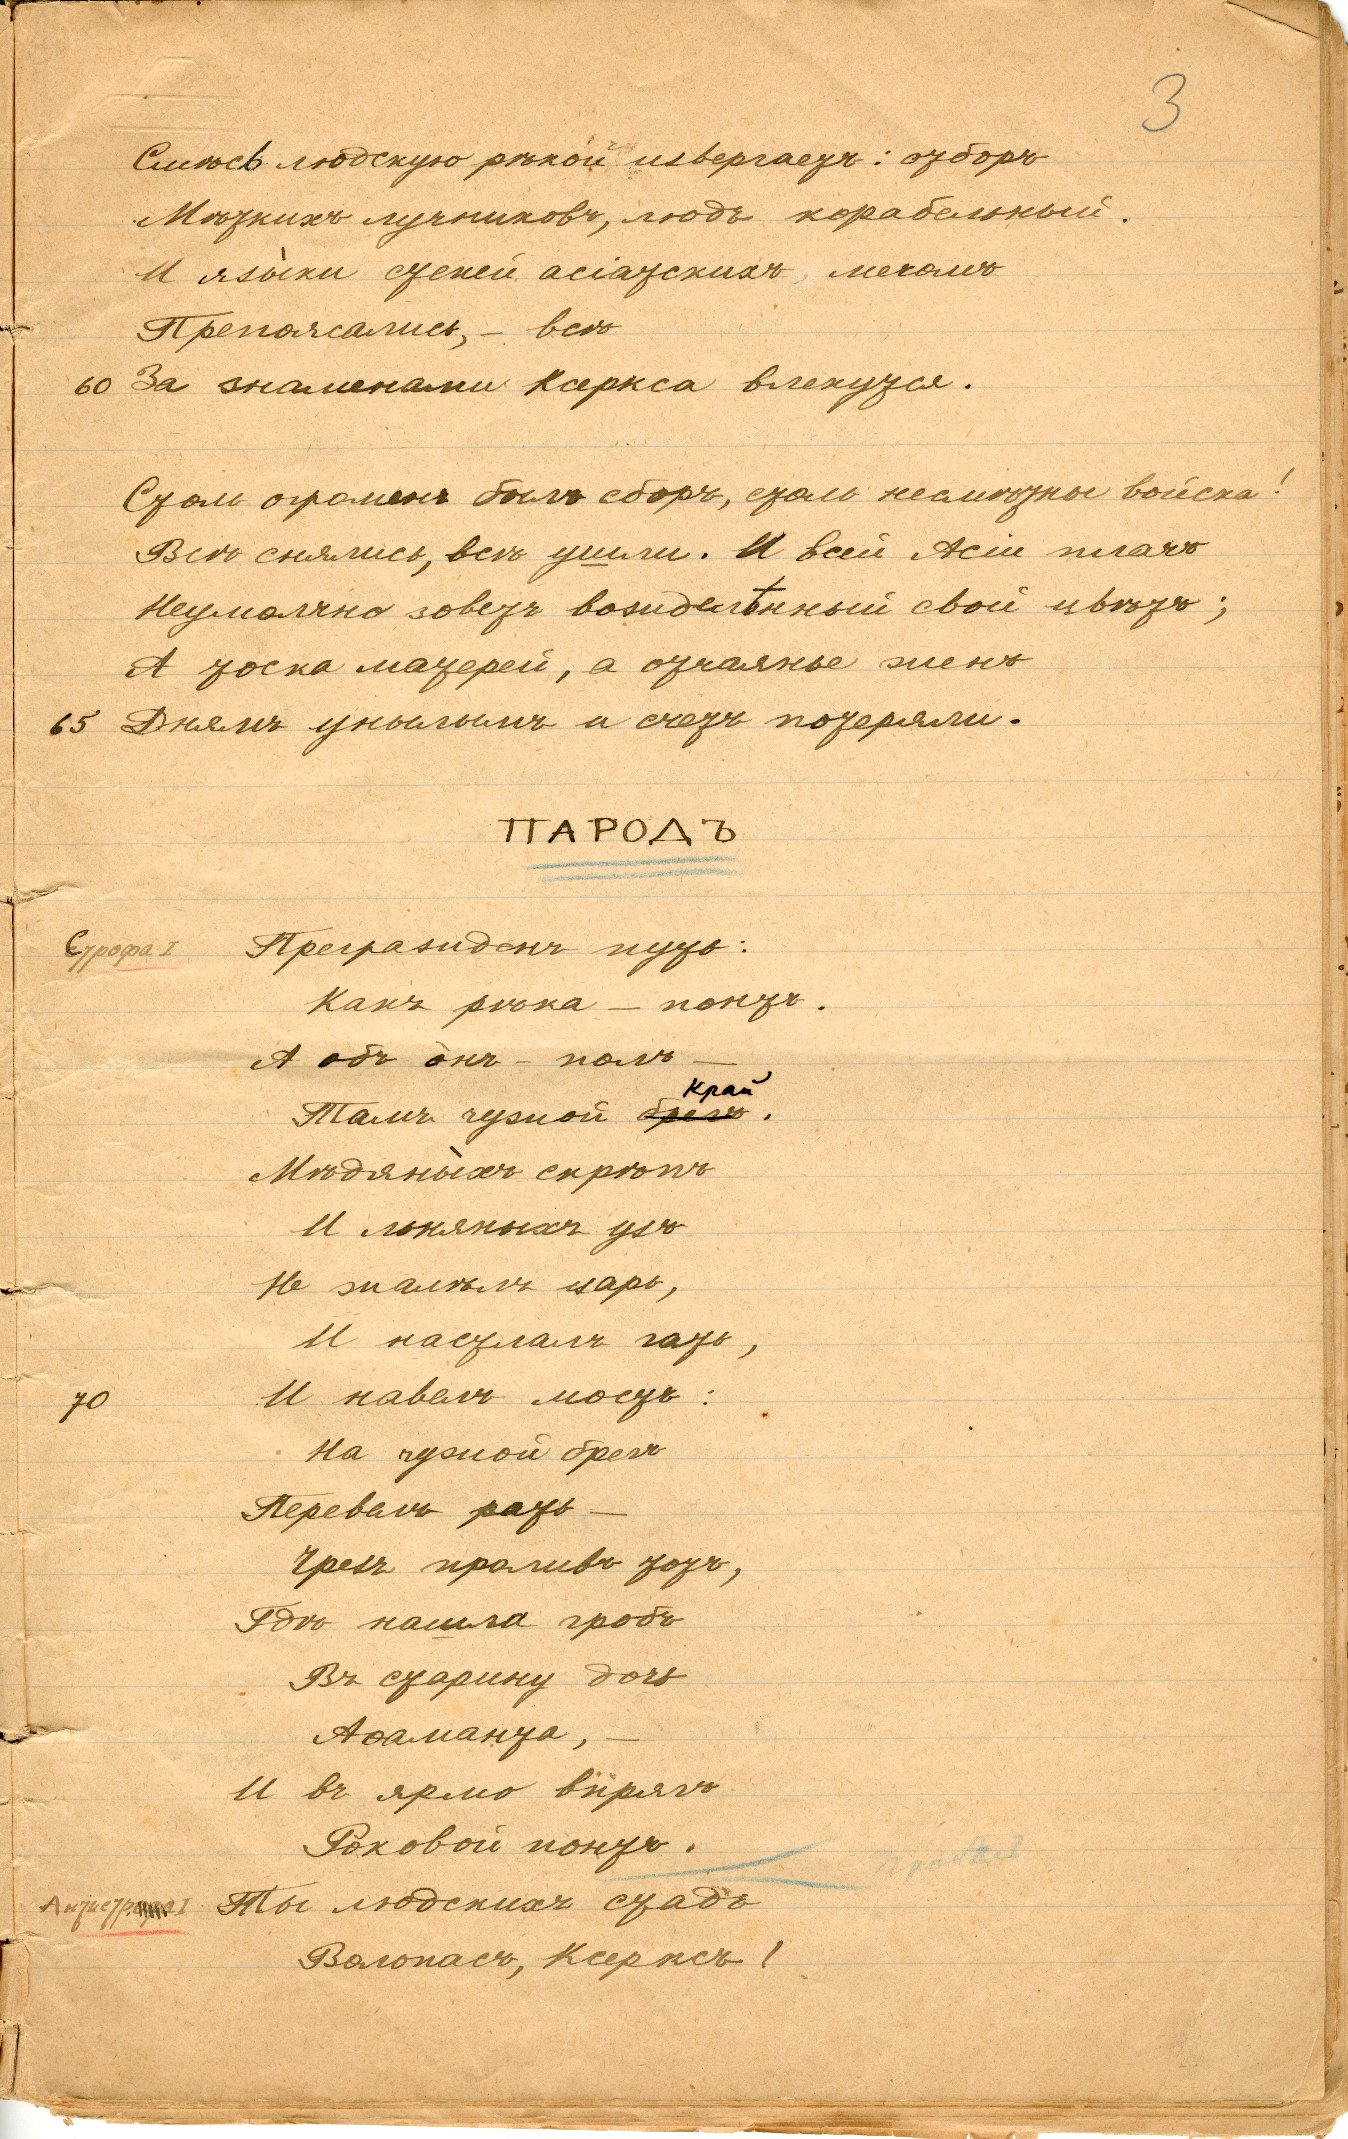 3
Смѣсь людскую рѣкой извергаетъ: отборъ
Мѣткихъ лучниковъ, людъ корабельный.
И язы́ки степей асіатскихъ мечомъ
Препоясались, – всѣ
60 За знаменами Ксеркса влекутся.
Столь огроменъ былъ сборъ, столь несмѣтны войска!
Всѣ снялись, всѣ ушли. И всей Асіи плачъ
Неумолчно зоветъ вожделѣнный свой цвѣтъ;
А тоска матерей, а отчаянье женъ
65 Днямъ унылымъ и счетъ потеряли.
ПАРОДЪ
Строфа I Прегражденъ путь:
Какъ рѣка – понтъ.
А объ о́нъ – полъ –
Край
Тамъ чужой брегъ.
Мѣдяны́хъ скрѣпъ
И льняныхъ узъ
Не жалѣлъ царь,
И настлалъ гать,
70 И навелъ мостъ:
На чужой брегъ
Перевелъ рать –
Чрезъ проливъ тотъ,
Гдѣ нашла гробъ
Въ старину дочь
Аѳаманта, –
И въ ярмо впрягъ
Роковой понтъ.
Пробѣлъ
Антистрофа I Ты людскихъ стадъ
Волопасъ, Ксерксъ!